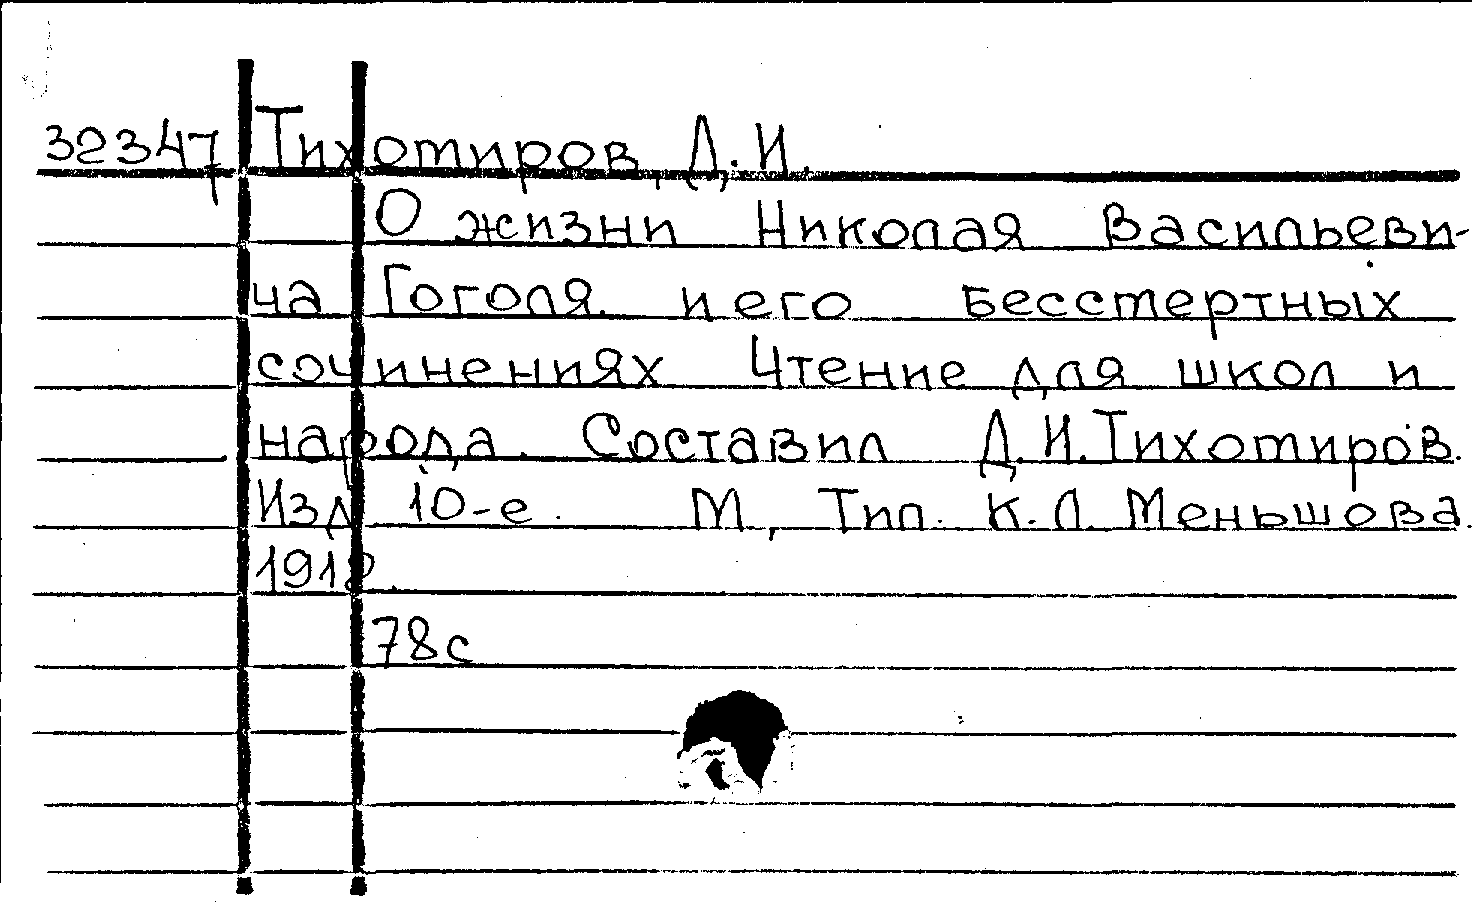 32347 Тихомиров, Д.И.
О жизни Николая Васильеви-
ча Гоголя и его бессмертных
сочинениях Чтение для школ и
народа. Составил Д.И.Тихомиров.
Изд 10-е. М, Тип. К.Л. Меньшова.
1918.
78с